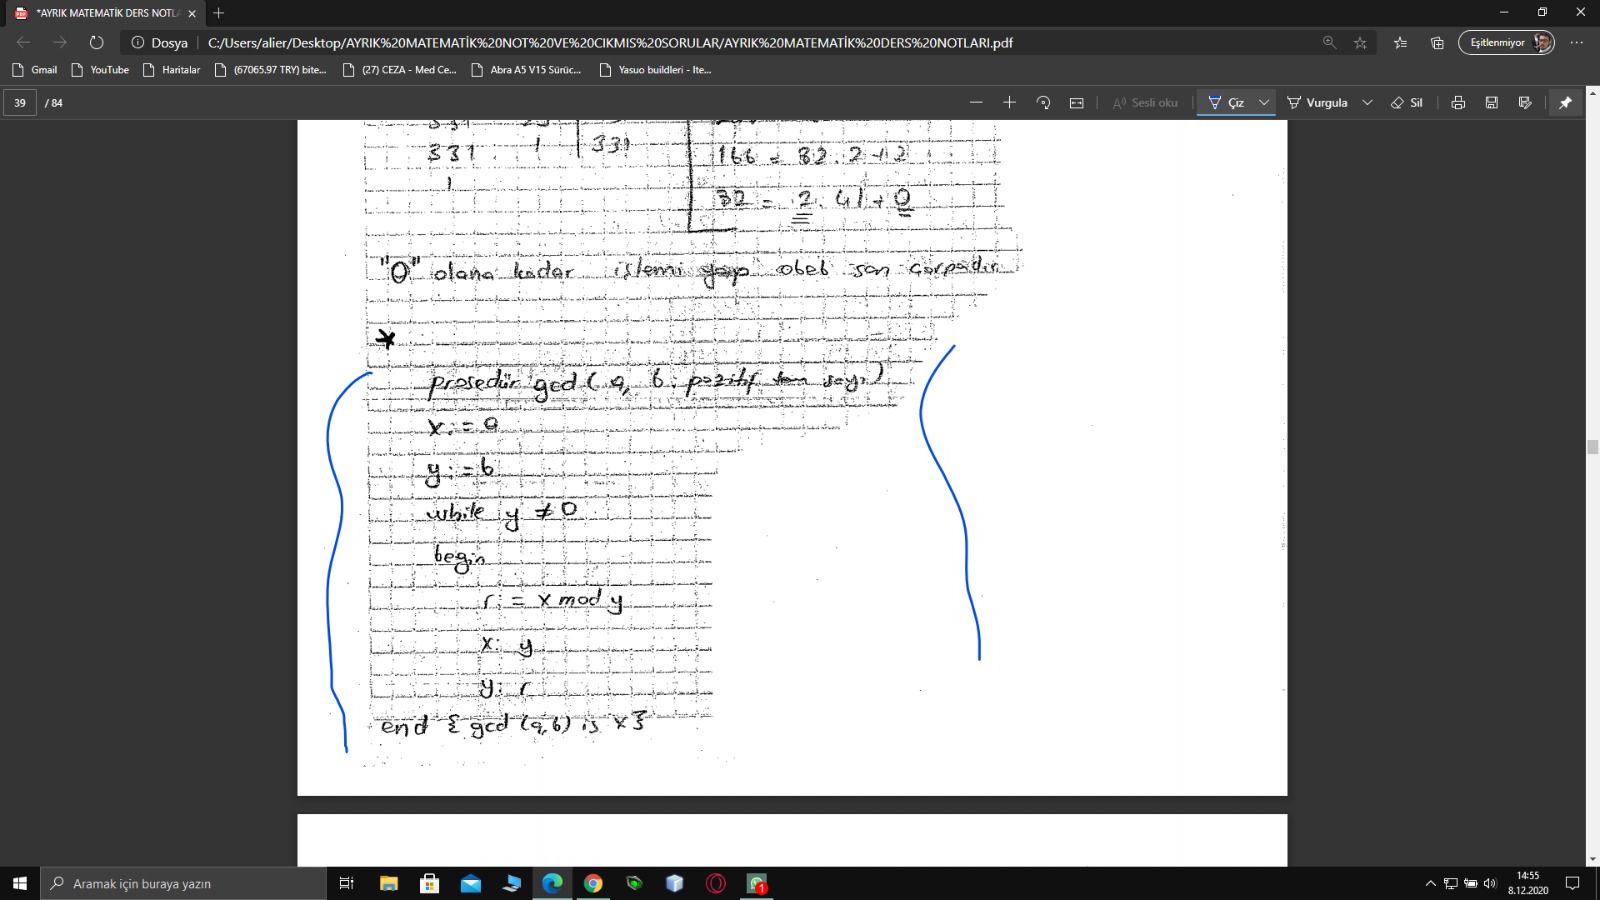 *AYRIK MATEMATİK DERS NOTLA
Dosya C:/Users/alier/Desktop/AYRIK%20MATEMATİK%20NOT%20VE%20CIKMIS%20SORULAR/AYRIK%20MATEMATİK%20DERS%20NOTLARI.pdf Eşitlenmiyor
Gmail YouTube Haritalar (67065.97 TRY) bite... (27) CEZA - Med Ce... Abra A5 V15 Sürüc... Yasuo buildleri - Ite...
39 / 84 Sesli oku Çiz Vurgula Sil
331 1 331
166 = 82.2+2
1
32 = 2.41+0
"0" olana kadar işlemi yap obeb son çarpadır
*
prosedür gcd (a, b: pozitif tam sayı)
x:=0
y:=b
while y ≠ 0
begin
r:= x mod y
x: y
y: r
end {gcd (a,b) is x}
Aramak için buraya yazın
1
14:55
8.12.2020